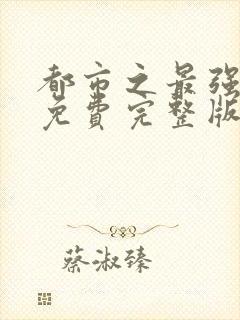 都市之最强
免費完整版
蔡淑臻